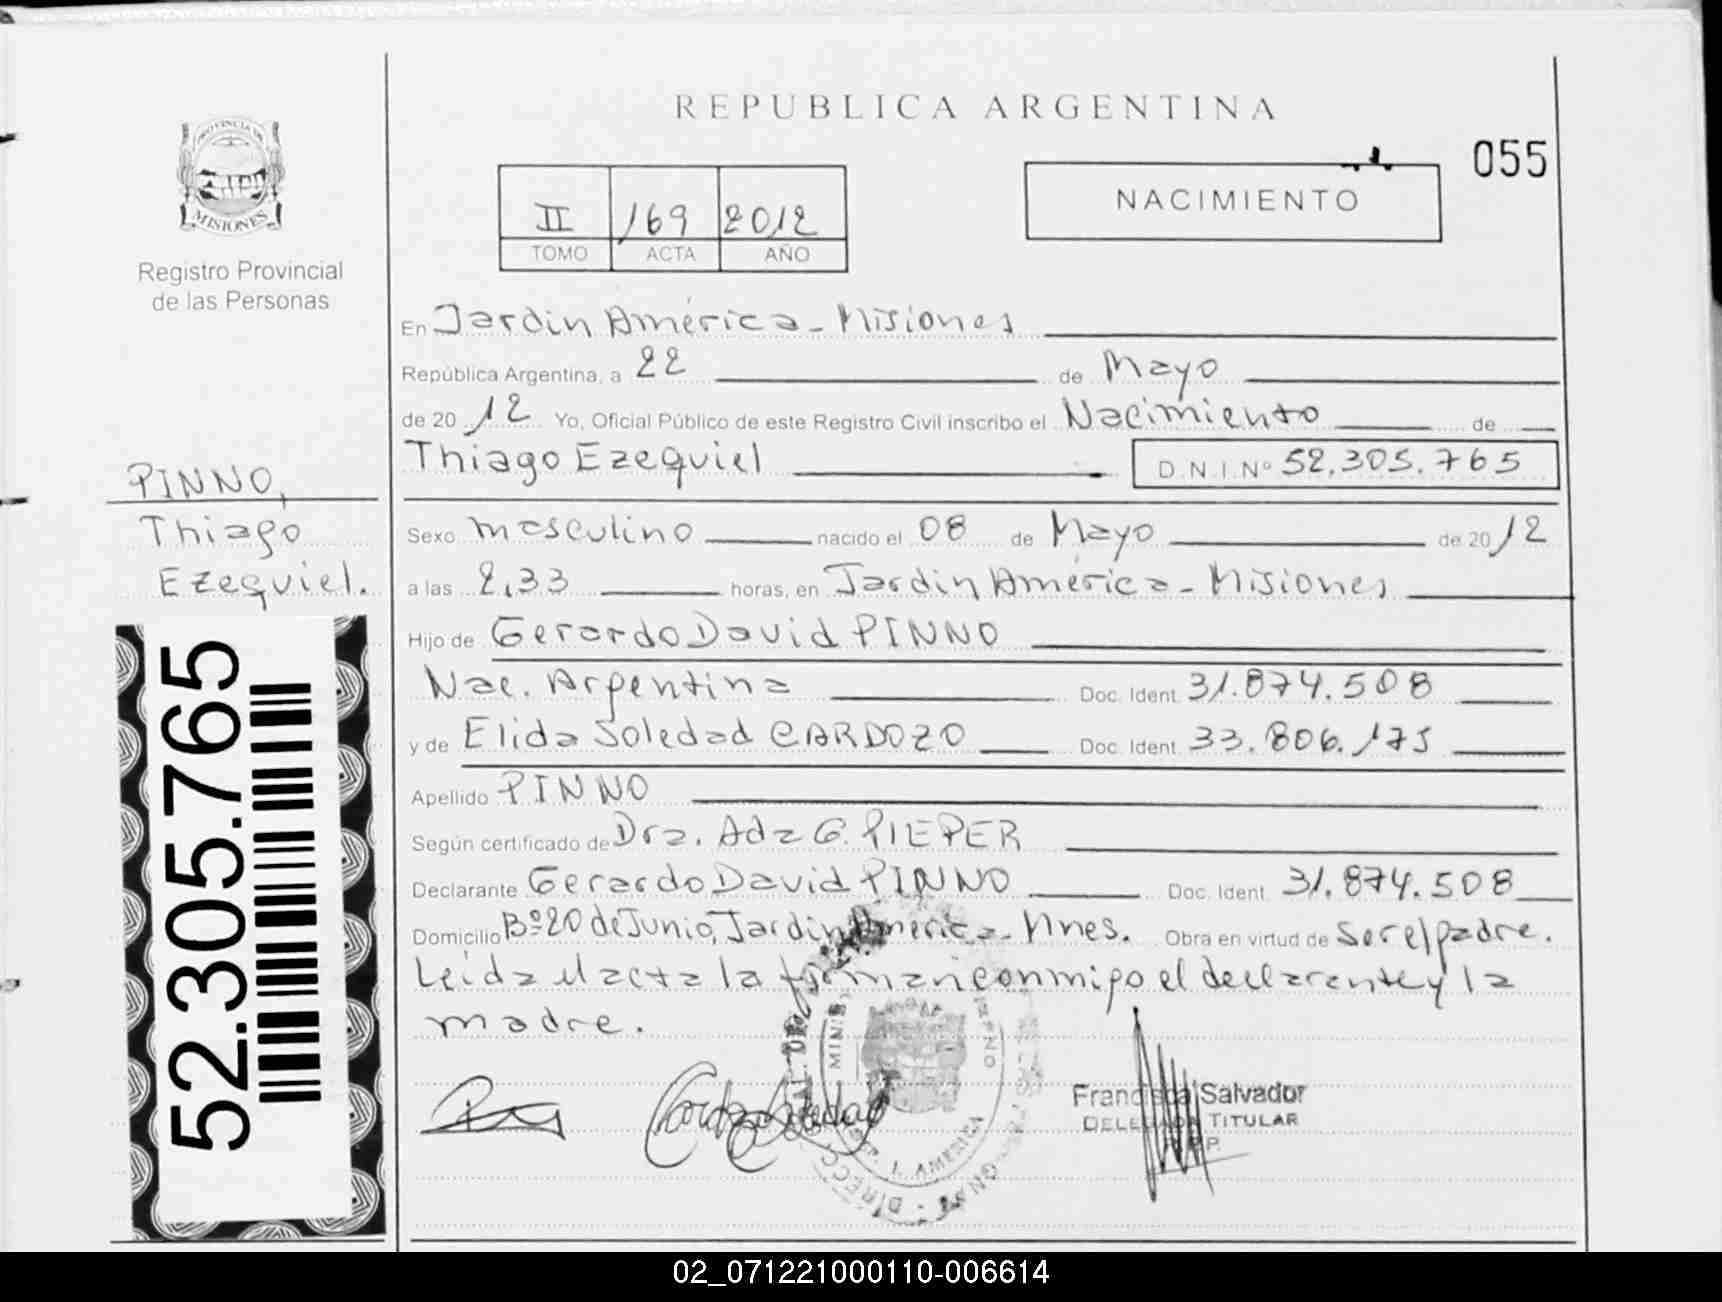 REPUBLICA ARGENTINA
055
PROVINCIA DE
MISIONES
Registro Provincial
de las Personas
II 169 2012
TOMO ACTA AÑO
NACIMIENTO
En Jardin América - Misiones
República Argentina, a 22 de Mayo
de 20 12 Yo, Oficial Público de este Registro Civil inscribo el Nacimiento de
Thiago Ezequiel D.N.I. Nº 52.305.765
PINNO,
Thiago
Ezequiel.
Sexo masculino nacido el 08 de Mayo de 20 12
a las 2,33 horas, en Jardin América - Misiones
Hijo de Gerardo David PINNO
Nac. Argentina Doc. Ident. 31.874.508
y de Elida Soledad CARDOZO Doc. Ident. 33.806.175
Apellido PINNO
Según certificado de Dra. Ada G. PIEPER
Declarante Gerardo David PINNO Doc. Ident. 31.874.508
Domicilio Bº 20 de Junio, Jardin América - Mnes. Obra en virtud de Ser el padre.
Leida el acta la firman conmigo el declarante y la
madre.
52.305.765
Cardozo Soledad
Francisca Salvador
DELEGADA TITULAR
R.P.P.
J. AMERICA
02_071221000110-006614